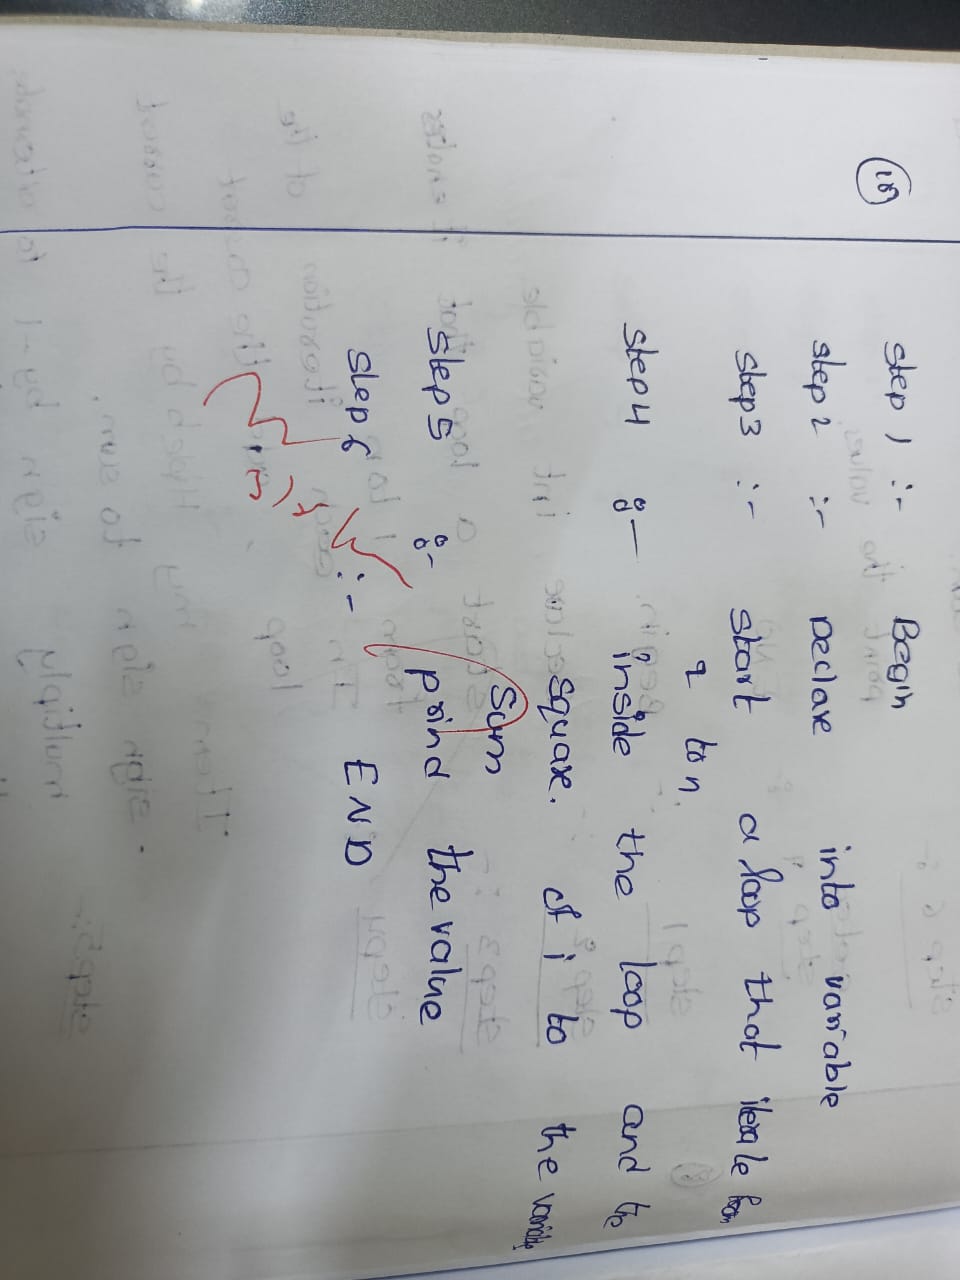 (10)
step 1 :- Begin
step 2 :- Declare into variable
step3 :- start a loop that iterale from
2 to n.
step 4 :- inside the loop and the
square. of i to the variable
Sum
step 5 :- prind the value
step 6 :- END